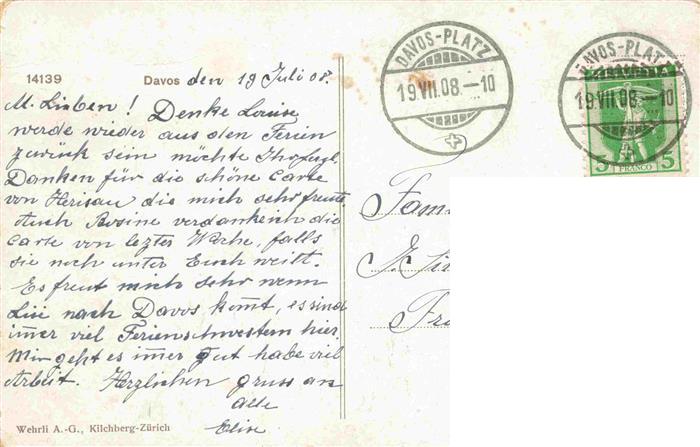 14139 Davos den 19 Juli 08.
M. Lieben! Denke Louise
werde wieder aus den Ferien
zurück sein möchte Ihr
Danken für die schöne Carte
von Herisau die mich sehr freute
Auch Rosine verdanke ich die
Carte von lezter Woche, falls
sie noch unter Euch weilt.
Es freut mich sehr wenn
Lisi nach Davos komt, es sind
imer viel Ferienschwestern hier.
Mir geht es imer gut habe viel
Arbeit. Herzlichen gruss an
alle
Elise
Wehrli A.-G., Kilchberg-Zürich
DAVOS-PLATZ
19.VII.08.–10
DAVOS-PLATZ
19.VII.08.–10
5 FRANCO 5
Fam
Fr